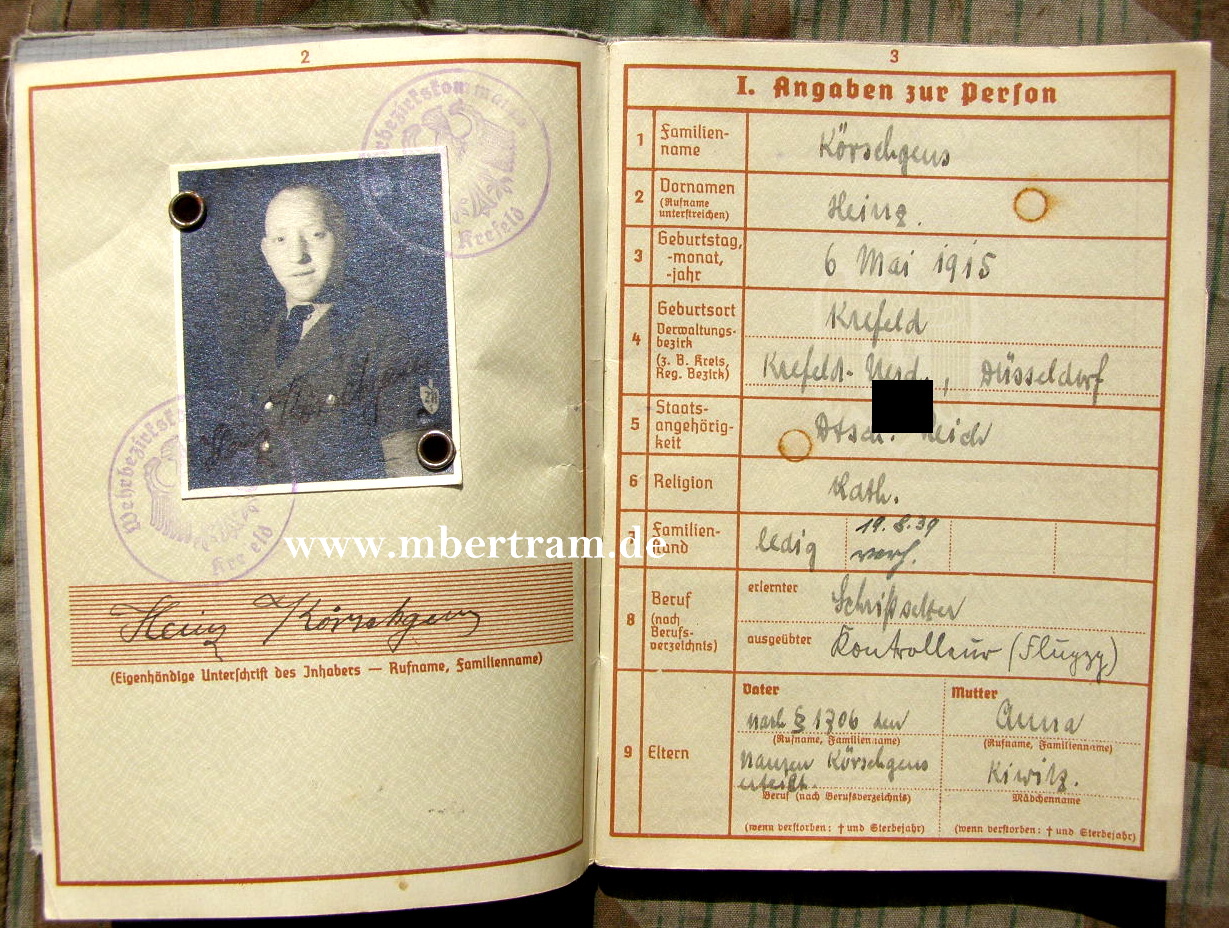 2
Wehrbezirkskommando
Krefeld
Wehrbezirksk
Krefeld
www.mbertram.de
Heinz Körschgens
(Eigenhändige Unterschrift des Inhabers — Rufname, Familienname)
3
I. Angaben zur Person
1 Familien-
name
Körschgens
2 Vornamen
(Rufname
unterstreichen)
Heinz.
3 Geburtstag,
-monat,
-jahr
6 Mai 1915
4 Geburtsort
Verwaltungs-
bezirk
(z. B. Kreis,
Reg. Bezirk)
Krefeld
Krefeld- Uerd., Düsseldorf
5 Staats-
angehörig-
keit
Dtsch. Reich
6 Religion
Kath.
7 Familien-
stand
ledig
19.8.39
verh.
8 Beruf
(nach
Berufs-
verzeichnis)
erlernter
Schriftsetzer
ausgeübter
Kontrolleur (Flugzg)
9 Eltern
Vater
nach § 1706 den
(Rufname, Familienname)
Namen Körschgens
erteilt.
Beruf (nach Berufsverzeichnis)
(wenn verstorben: † und Sterbejahr)
Mutter
Anna
(Rufname, Familienname)
Kiwitz.
Mädchenname
(wenn verstorben: † und Sterbejahr)